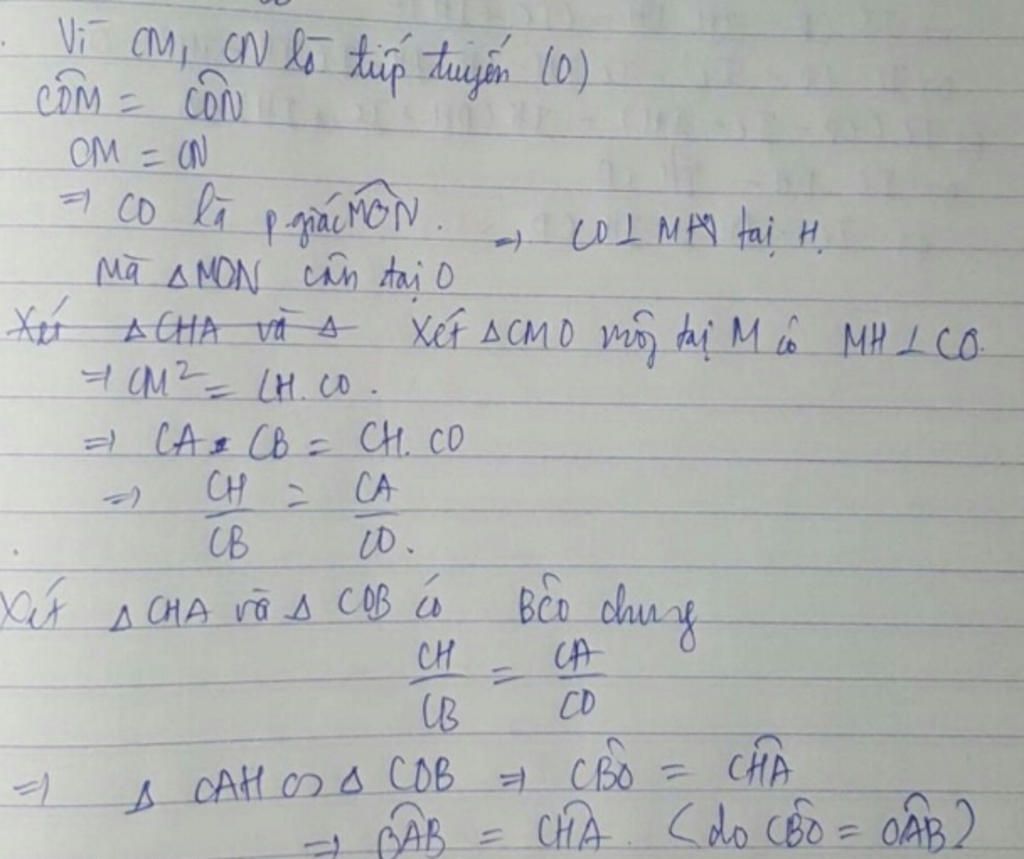 Vì CM, CN là tiếp tuyến (O)
CÔM = CÔN
CM = CN
⇒ CO là p.giác MÔN. ⇒ CO ⊥ MN tại H.
Mà △MON cân tại O
Xét △CHA và △ Xét △CMO vuông tại M có MH ⊥ CO.
⇒ CM² = CH.CO.
⇒ CA . CB = CH. CO
⇒ CH/CB = CA/CO.
Xét △ CHA và △ COB có BĈO chung
CH/CB = CA/CO
⇒ △ CAH ∽ △ COB ⇒ CB̂O = CĤA
⇒ OÂB = CĤA. (do CB̂O = OÂB)